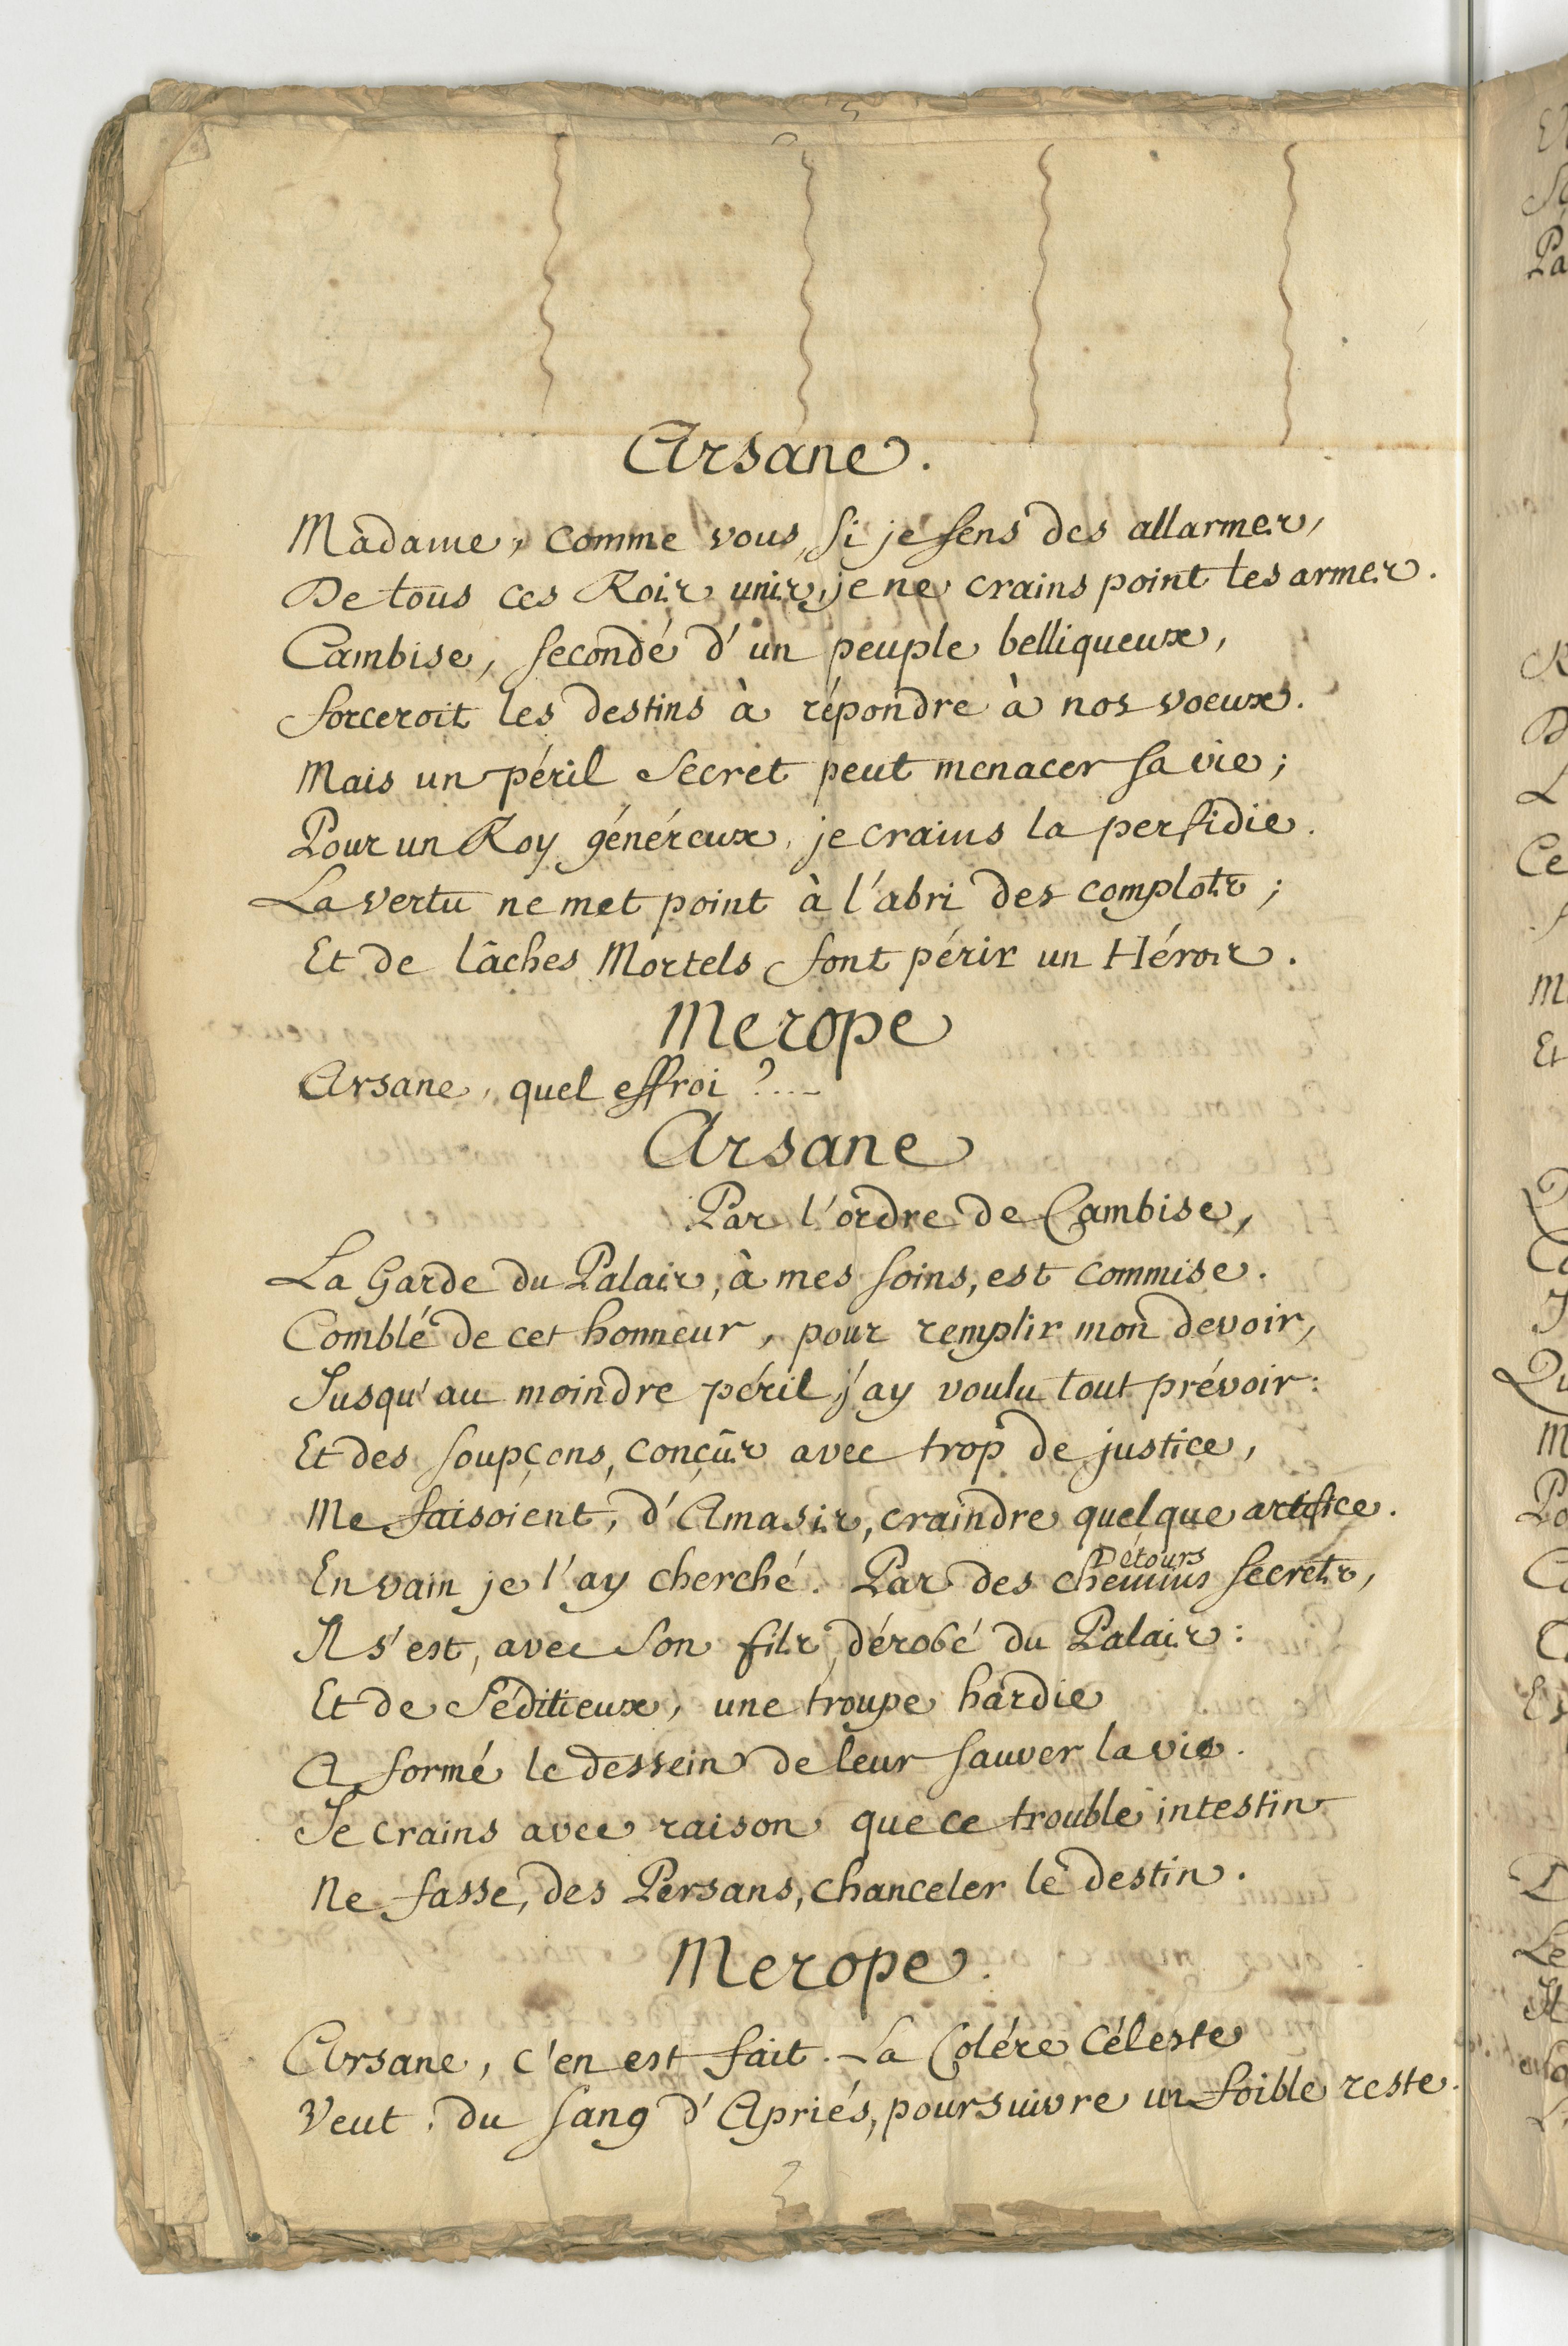 Arsane.
Madame, comme vous, si je sens des allarmes,
De tous ces Rois unis, je ne crains point les armes.
Cambise, secondé d'un peuple belliqueux,
forceroit les destins à répondre à nos voeux.
Mais un péril secret peut menacer sa vie;
Pour un Roy généreux, je crains la perfidie.
La vertu ne met point à l'abri des complots;
Et de lâches Mortels font périr un Héros.
Merope
Arsane, quel effroi?...
Arsane
Par l'ordre de Cambise,
La Garde du Palais, à mes soins, est commise.
Comblé de cet honneur, pour remplir mon devoir,
Jusqu'au moindre péril, j'ay voulu tout prévoir:
Et des soupçons, conçûs avec trop de justice,
Me faisoient, d'Amasis, craindre quelque artifice.
En vain je l'ay cherché. Par des chemins Détours secrets,
Il s'est, avec son fils, dérobé du Palais:
Et de Séditieux, une troupe hardie
A formé le dessein de leur sauver la vie.
Je crains avec raison que ce trouble intestin
Ne fasse, des Persans, chanceler le destin.
Merope.
Arsane, c'en est fait. La Colére Céleste
Veut, du sang d'Apriés, poursuivre un foible reste.